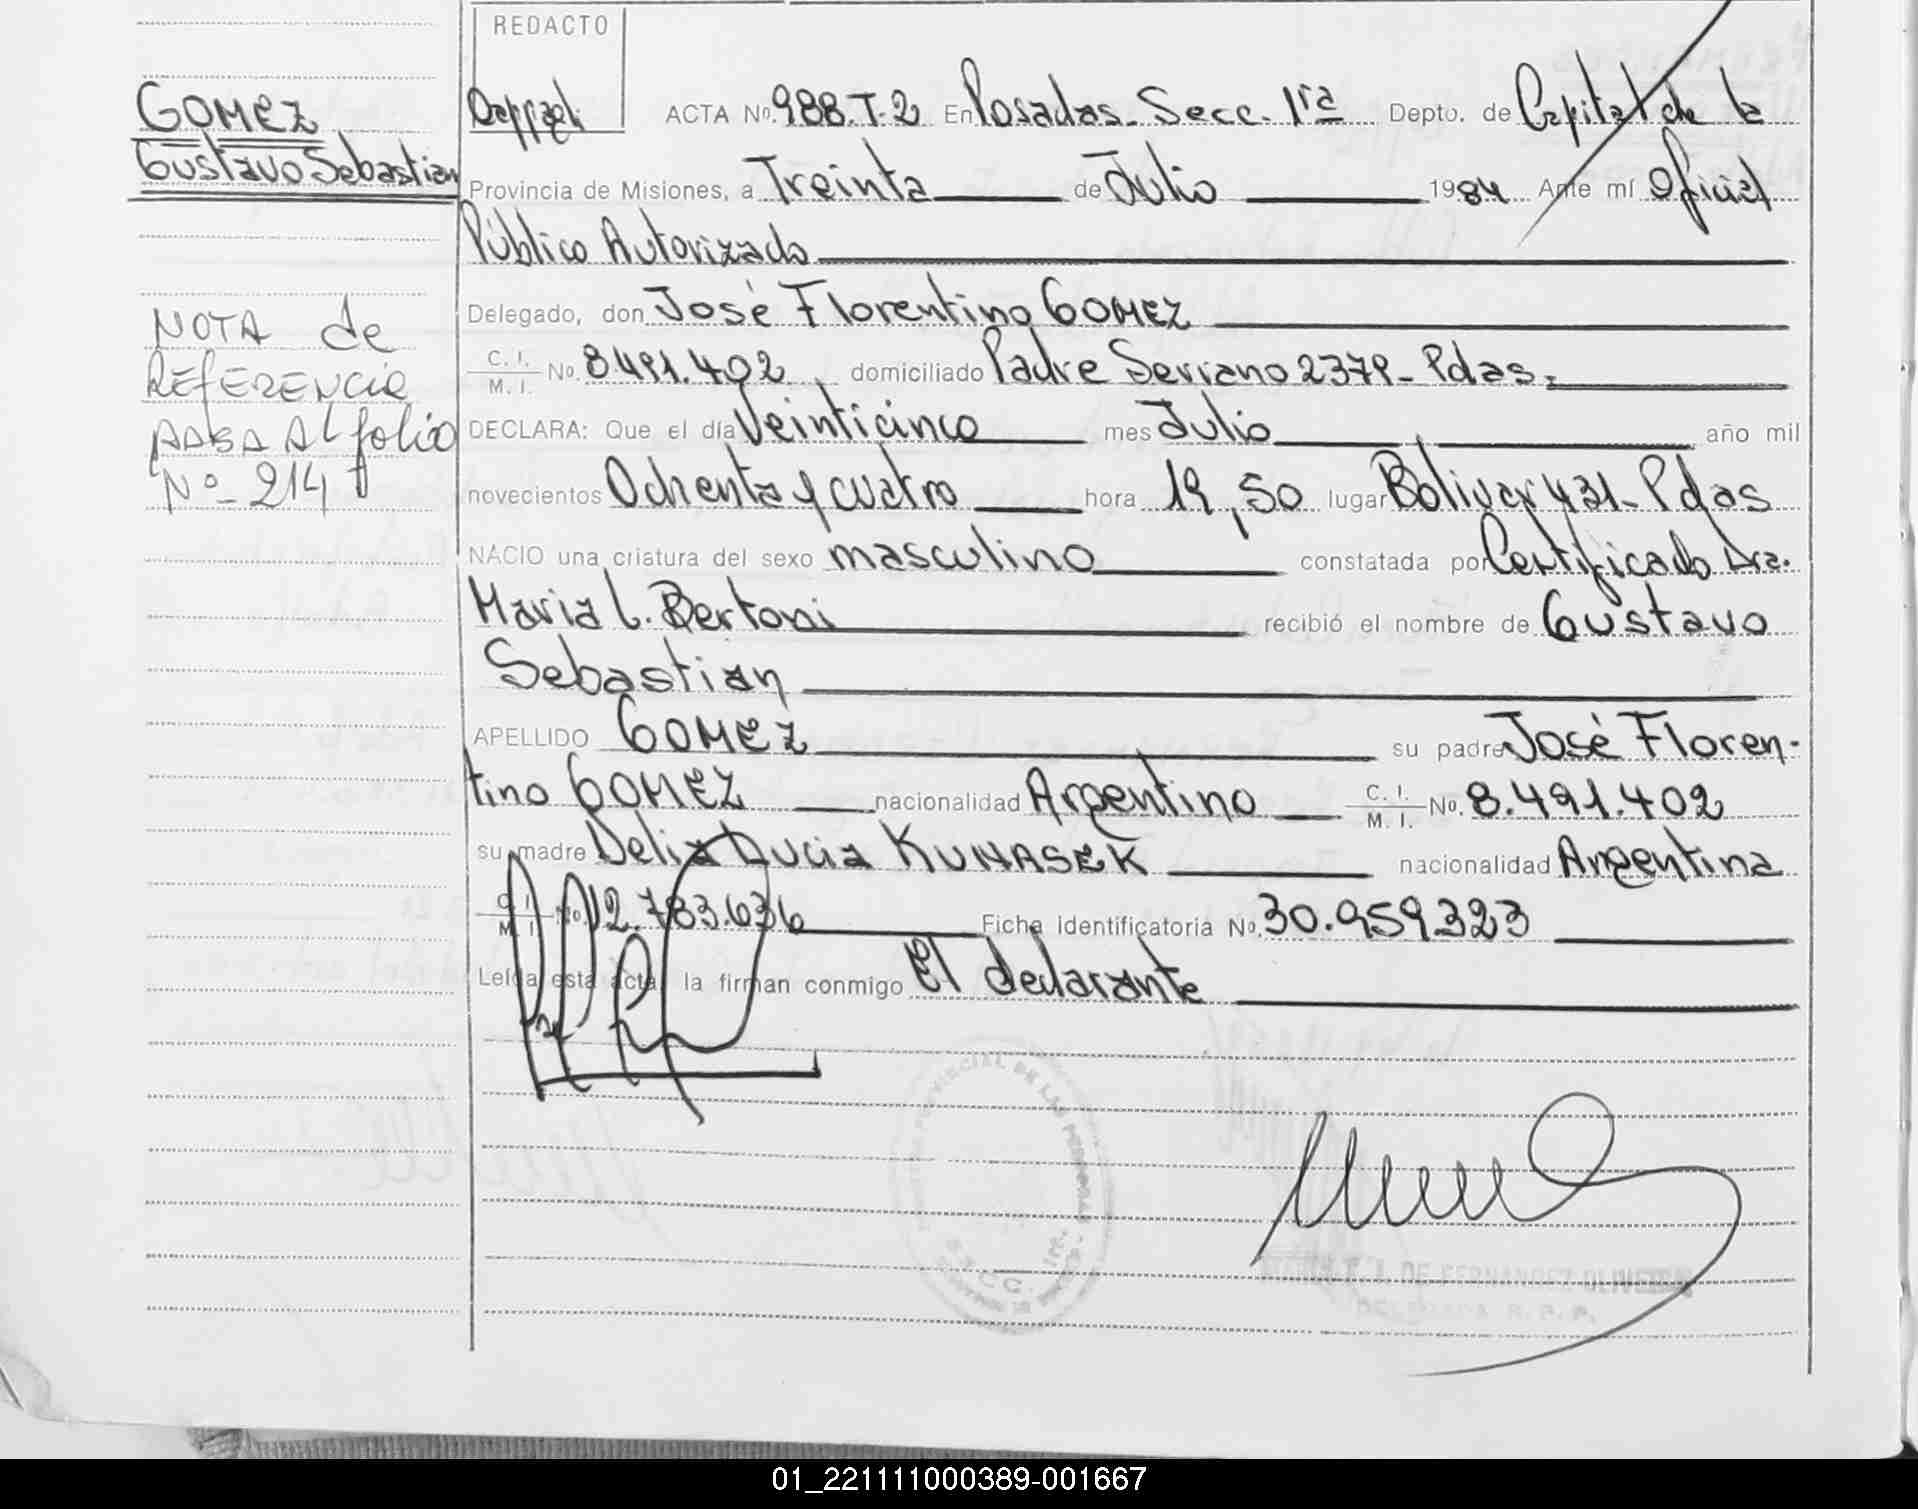 REDACTO
GOMEZ
Gustavo Sebastian
NOTA de
REFERENCIA
PASA AL folio
Nº - 214
ACTA Nº. 988.T.2 En Posadas - Secc. 1ra Depto. de Capital de la
Provincia de Misiones, a Treinta de Julio 1984 Ante mí Oficial
Público Autorizado
Delegado, don José Florentino GOMEZ
C. I. M. I. No. 8491.402, domiciliado Padre Serrano 2379 - Pdas.
DECLARA: Que el día Veinticinco mes Julio, año mil
novecientos Ochenta y cuatro hora 19,50 lugar Bolivar 431 - Pdas
NACIO una criatura del sexo masculino constatada por Certificado Dra.
Maria L. Bertoni recibió el nombre de Gustavo
Sebastian
APELLIDO GOMEZ su padre José Floren-
tino GOMEZ nacionalidad Argentino C. I. M. I. No. 8.491.402
su madre Delia Lucia KUNASEK nacionalidad Argentina
C. I. M. I. No. 12.783.636 Ficha identificatoria No. 30.959.323
Leída esta acta, la firman conmigo El declarante
PROVINCIAL DE LAS PERSONAS
DE FERNANDEZ OLIVERA
DELEGADA R. P. P.
01_221111000389-001667